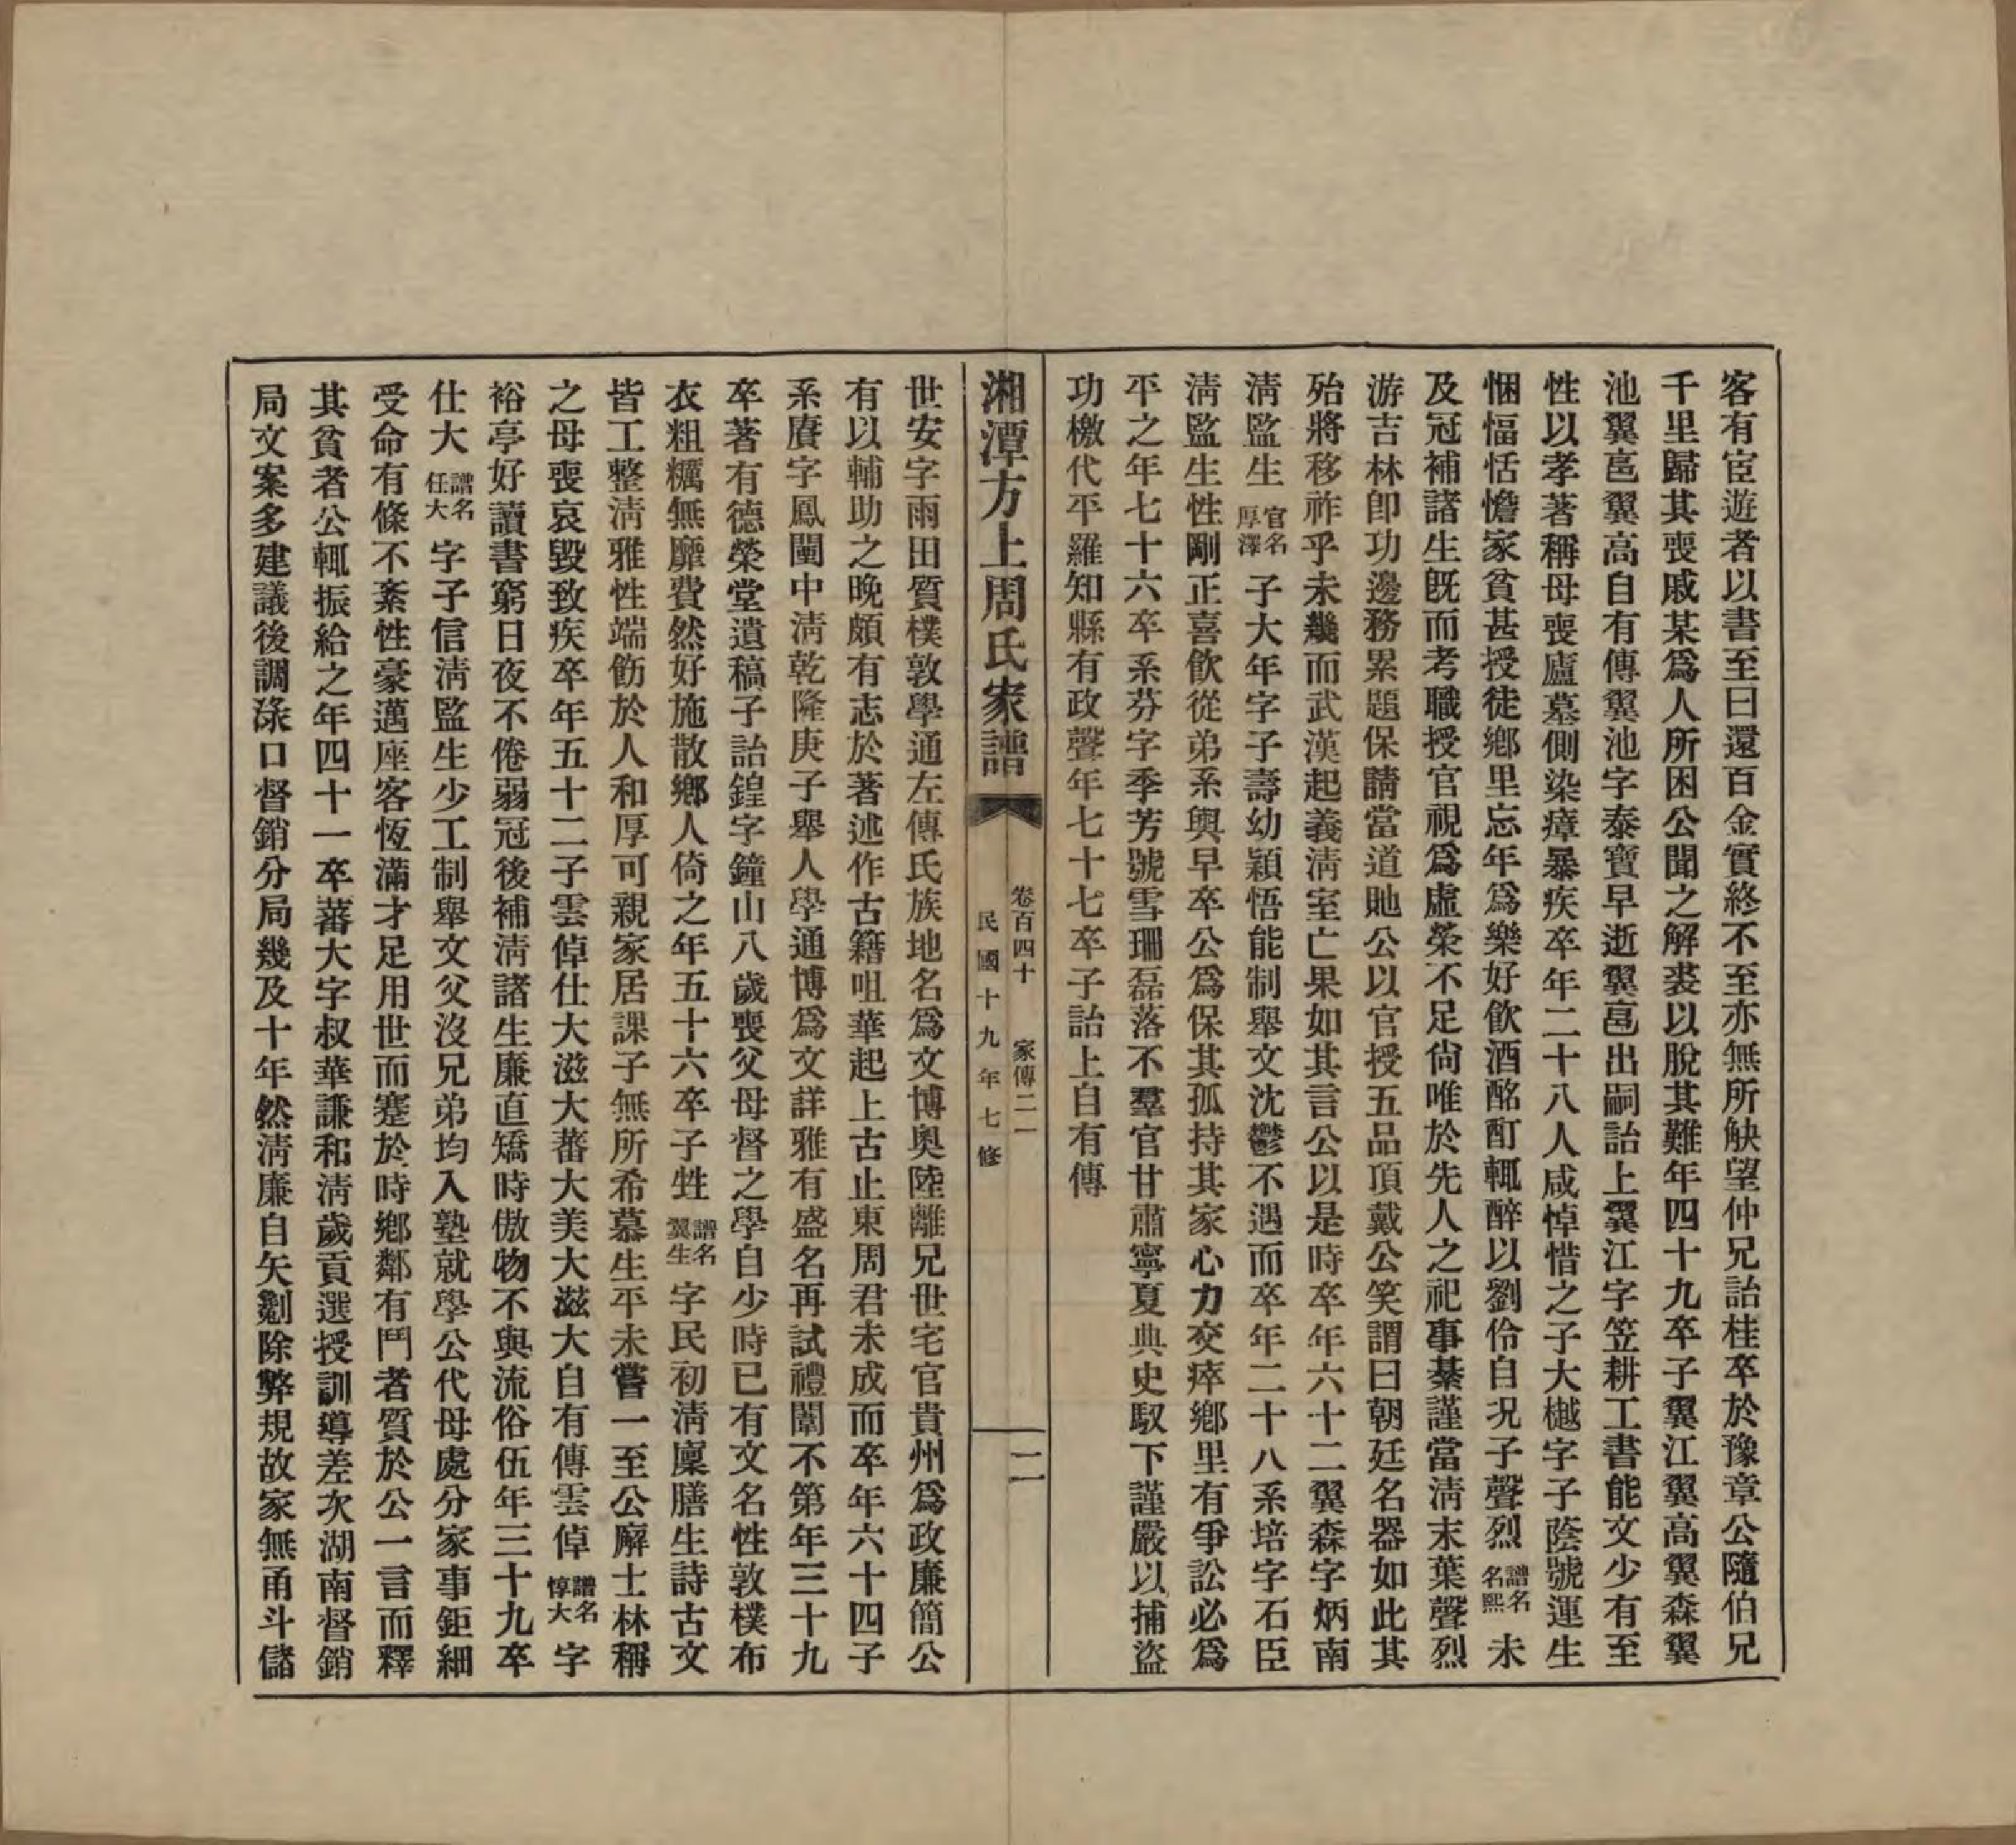 客有宦遊者以書至曰還百金實終不至亦無所觖望仲兄詒桂卒於豫章公隨伯兄
千里歸其喪戚某爲人所困公聞之解裘以脫其難年四十九卒子翼江翼高翼森翼
池翼邑翼高自有傳翼池字泰寶早逝翼邑出嗣詒上翼江字笠耕工書能文少有至
性以孝著稱母喪廬墓側染瘴暴疾卒年二十八人咸悼惜之子大樾字子蔭號運生
悃愊恬憺家貧甚授徒鄉里忘年爲樂好飲酒酩酊輒醉以劉伶自況子聲烈譜名名熙未
及冠補諸生旣而考職授官視爲虛榮不足尙唯於先人之祀事綦謹當淸末葉聲烈
游吉林卽功邊務累題保請當道貤公以官授五品頂戴公笑謂曰朝廷名器如此其
殆將移祚乎未幾而武漢起義淸室亡果如其言公以是時卒年六十二翼森字炳南
淸監生官名厚澤子大年字子壽幼穎悟能制舉文沈鬱不遇而卒年二十八系培字石臣
淸監生性剛正喜飲從弟系輿早卒公爲保其孤持其家心力交瘁鄉里有爭訟必爲
平之年七十六卒系芬字季芳號雪珊磊落不羣官甘肅寧夏典史馭下謹嚴以捕盜
功檄代平羅知縣有政聲年七十七卒子詒上自有傳
湘潭方上周氏家譜
卷百四十 家傳二一
二
民國十九年七修
世安字雨田質樸敦學通左傳氏族地名爲文博奧陸離兄世宅官貴州爲政廉簡公
有以輔助之晚頗有志於著述作古籍咀華起上古止東周君未成而卒年六十四子
系賡字鳳閶中淸乾隆庚子舉人學通博爲文詳雅有盛名再試禮闈不第年三十九
卒著有德榮堂遺稿子詒鍠字鐘山八歲喪父母督之學自少時已有文名性敦樸布
衣粗糲無靡費然好施散鄉人倚之年五十六卒子甡譜名翼生字民初淸廩膳生詩古文
皆工整淸雅性端飭於人和厚可親家居課子無所希慕生平未嘗一至公廨士林稱
之母喪哀毀致疾卒年五十二子雲倬仕大滋大蕃大美大滋大自有傳雲倬譜名惇大字
裕亭好讀書窮日夜不倦弱冠後補淸諸生廉直矯時傲物不與流俗伍年三十九卒
仕大譜名任大字子信淸監生少工制舉文父沒兄弟均入塾就學公代母處分家事鉅細
受命有條不紊性豪邁座客恆滿才足用世而蹇於時鄉鄰有鬥者質於公一言而釋
其貧者公輒振給之年四十一卒蕃大字叔華謙和淸歲貢選授訓導差次湖南督銷
局文案多建議後調淥口督銷分局幾及十年然淸廉自矢剗除弊規故家無甬斗儲